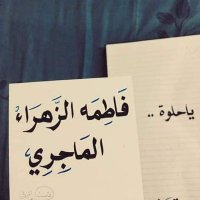 فَاطِمَه الزَّهرَاءُ
المَاجِرِي
ياحلوة ..